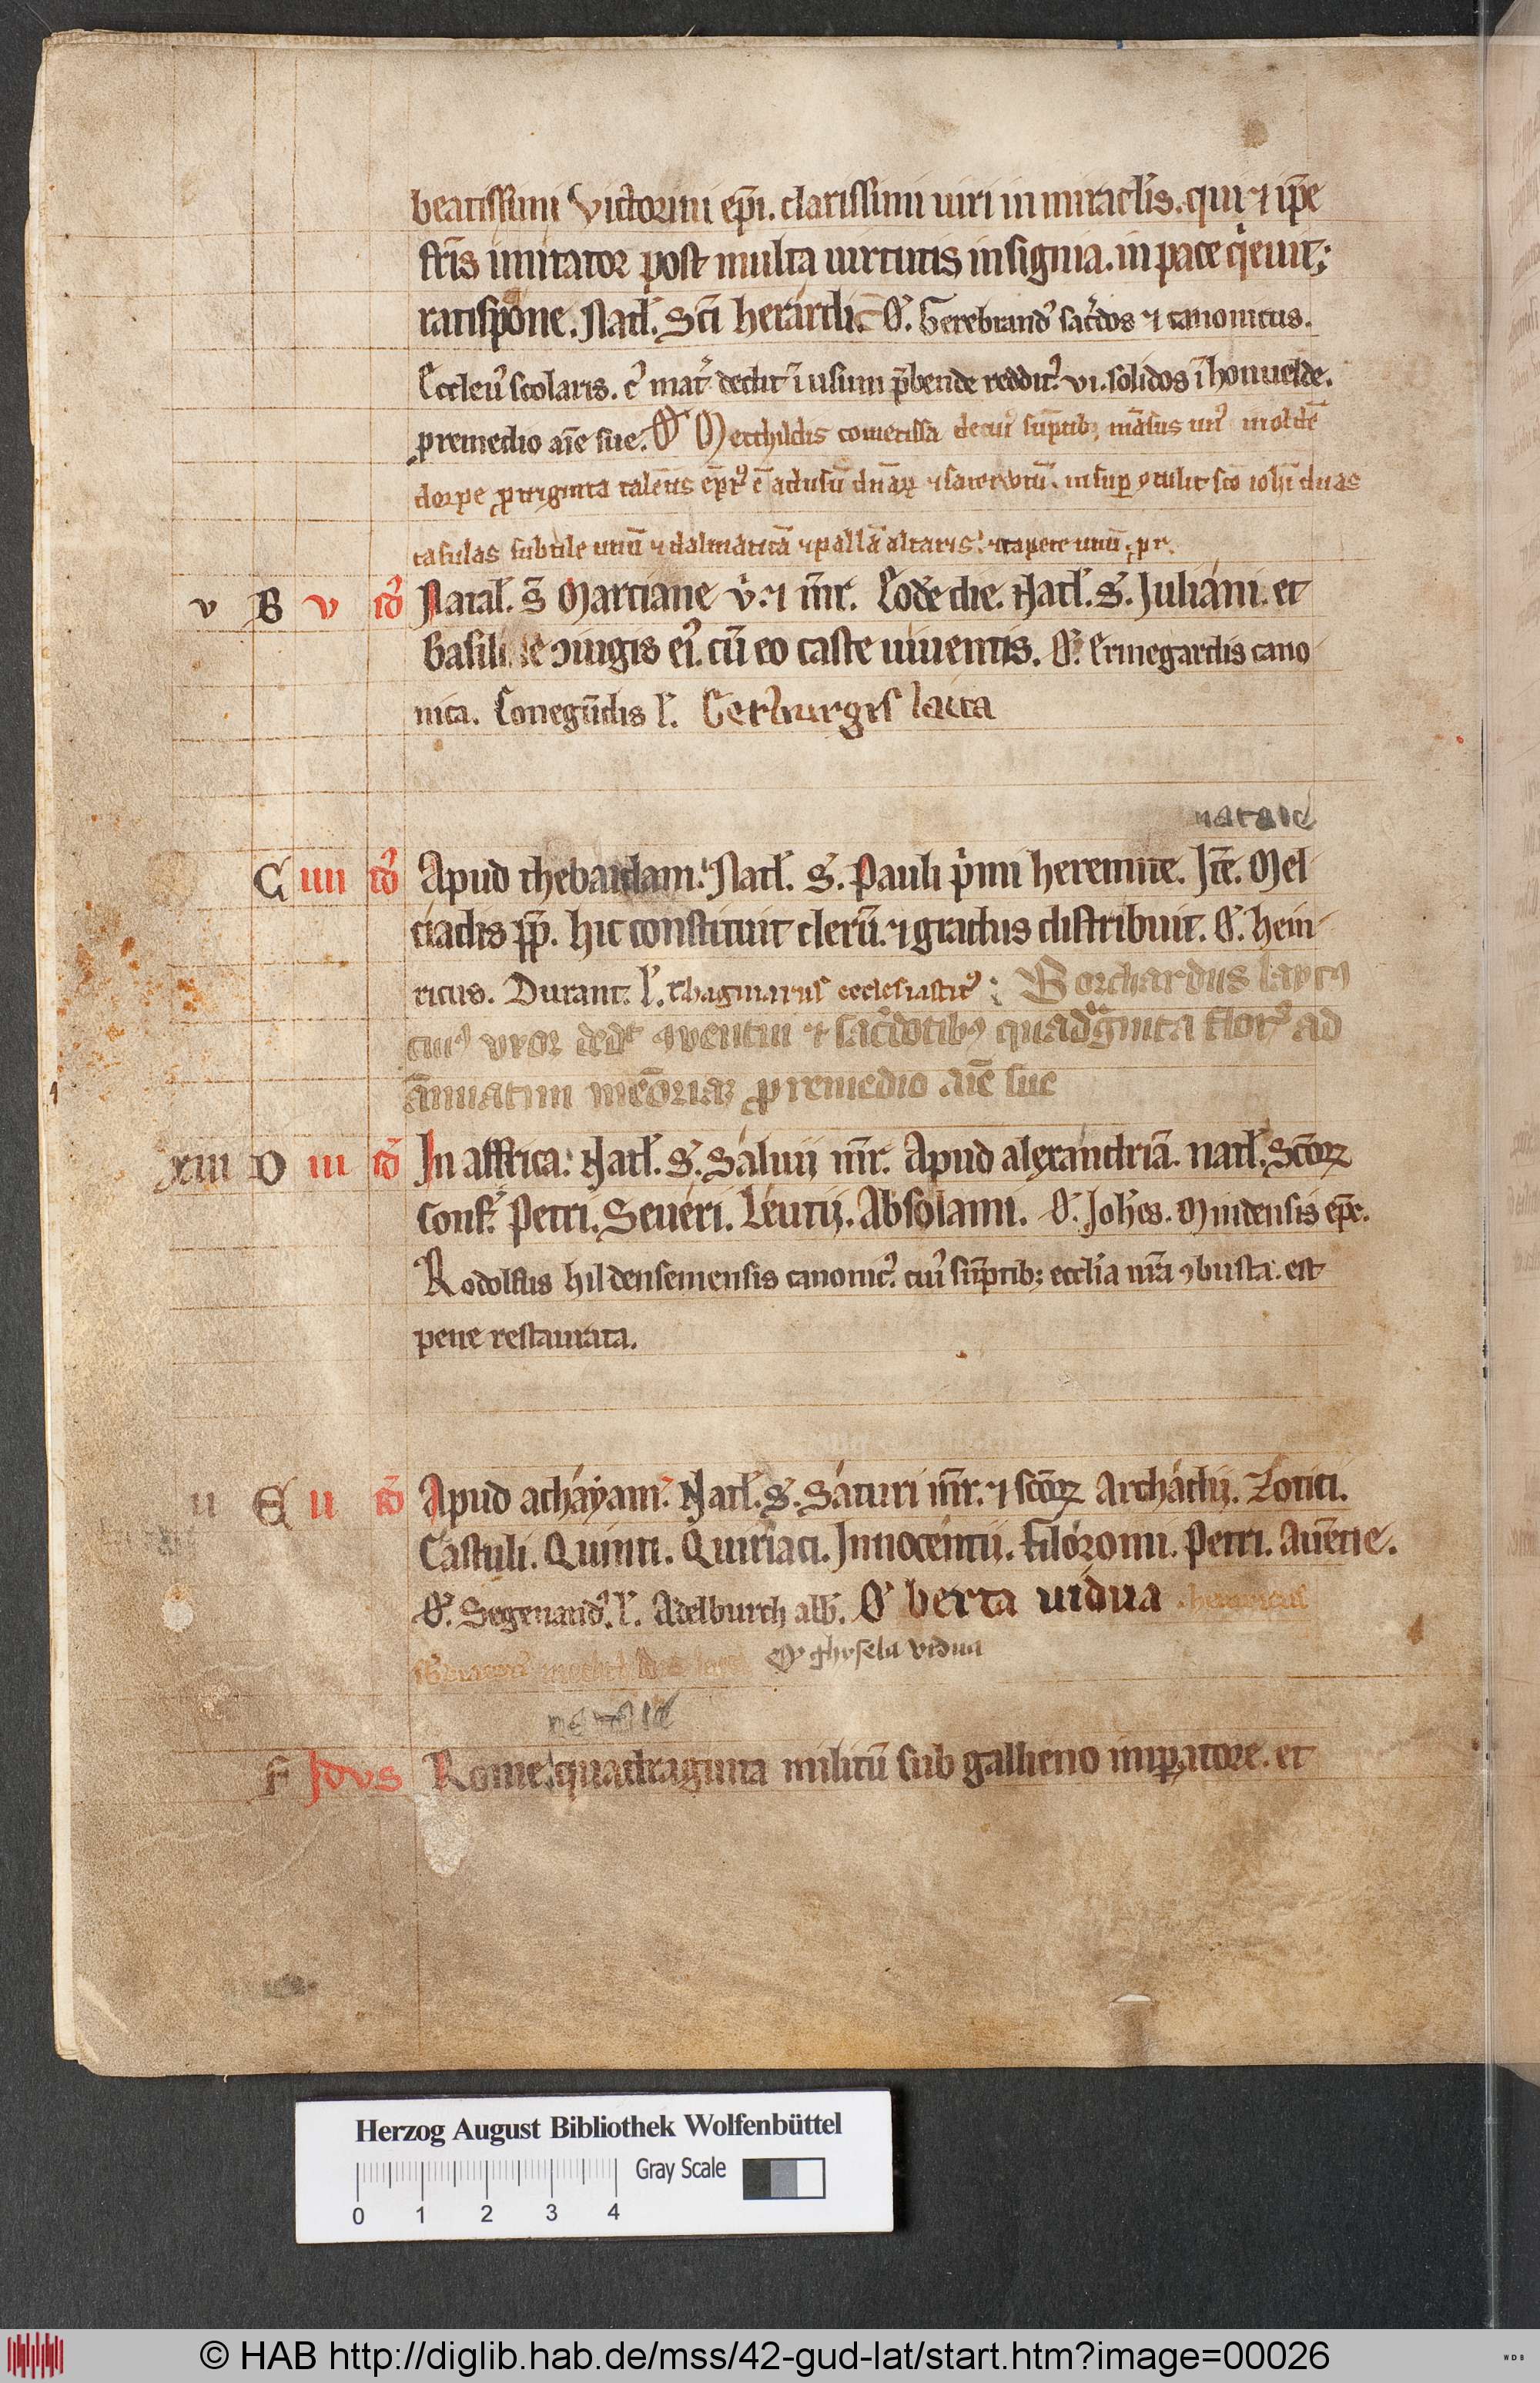 beatissimi Victorini ep̄i. clarissimi uiri in miracl̓is. qui ⁊ ip̄e
fr̄is imitator post multa uirtutis insignia. in pace q̓euit;
ratispone. Natł. Sc̄i herardi. O᷒. Gerebrand᷒ sac̓dos ⁊ canonicus.
Eccleu᷒ scolaris. c᷒ mat᷒ dedit ī usum p̄bende reddit᷒. vi. solidos ī honuelde.
ꝓ remedio aīe sue. O᷒ Mecthildis cometissa
dorpe ꝓ triginta talentis
casulas subtile unū ⁊ dalmaticā ⁊ pallā altaris. ⁊ tapete unū.
v B v id᷒ Natał. S̄ Marciane v᷒. ⁊ m̄r. Eodē die. Natł. S. Juliani. et
Basilisse ↄiugis ei᷒. cū eo caste uiuentis. O᷒. Ermegardis cano
nica. Conegūdis ł. Gerburgis laica
natale
C iiii id᷒ Apud thebaidam. Natł. S. Pauli p̓mi heremite. Itē. Mel
ciadis pp̄. hic constituit clerū. ⁊ gradus distribuit. O᷒. hein
ricus. Durant. ł. thagmarus ecclesiastic᷒ : Borchardus layc᷒
cui᷒ vxor ded̓t ꝯventui ⁊ sac̓dotib᷒ quadͣginta flor᷒ ad
ānuatim meōriaꝫ ꝓ remedio aīe sue
xiii D iii id᷒ In affrica. Natł. S. Saluii m̄r. Apud alexandriā. natł. Sc̄orꝝ
Conf᷒. Petri. Seueri. Leucii. Absolami. O᷒. Joh̄es. Mindensis ep̄c.
Rodolfus hildensemensis canonic᷒. cui᷒ sūptib; eccl̓ia nr̄a ꝯbusta. est
pene restaurata.
ii E ii id᷒ Apud achayam. Natł. S. Saturi m̄r. ⁊ sc̄orꝝ Archadii. Zotici.
Castuli. Quinti. Quiriaci. Innocentii. Filoromi. Petri. Auētie.
O᷒. Segenand᷒. ł. Adelburch alb̄. O᷒ berta uidua . henricus
O᷒ ghysela vidua
natale
F Idus Rome quadraginta militū sub gallieno imꝑatore. et
Herzog August Bibliothek Wolfenbüttel
Gray Scale
0 1 2 3 4
© HAB http://diglib.hab.de/mss/42-gud-lat/start.htm?image=00026